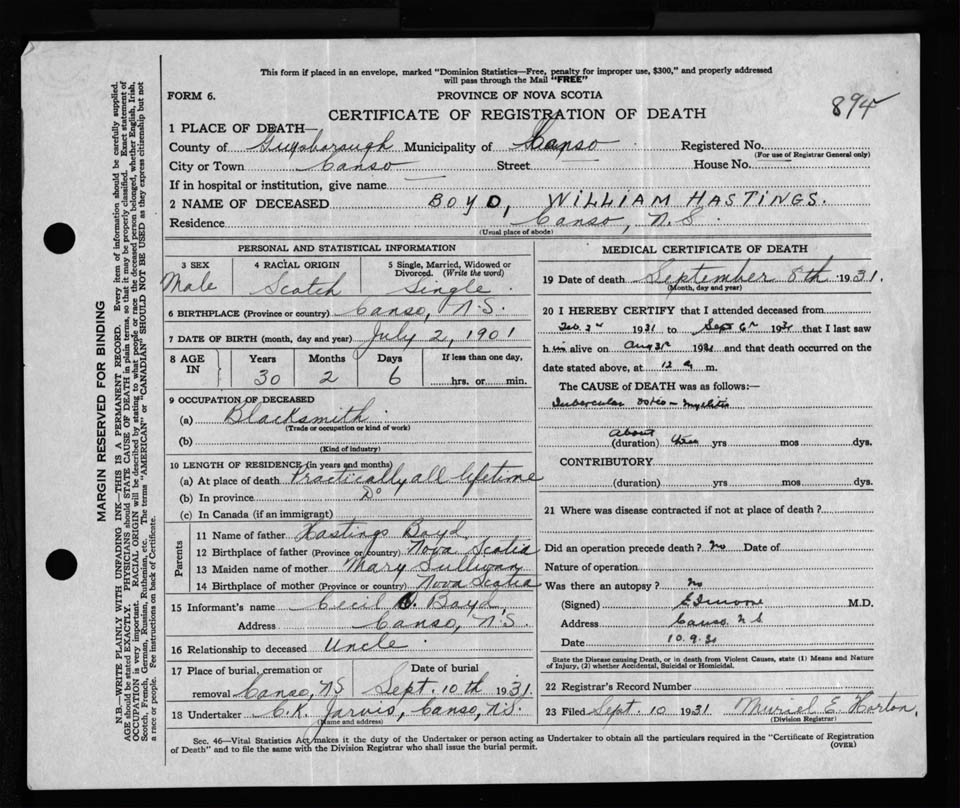 This form if placed in an envelope, marked "Dominion Statistics—Free, penalty for improper use, $300," and properly addressed
will pass through the Mail "FREE"
FORM 6.
PROVINCE OF NOVA SCOTIA
894
CERTIFICATE OF REGISTRATION OF DEATH
1 PLACE OF DEATH—
County of Guysborough Municipality of Canso Registered No.
(For use of Registrar General only)
City or Town Canso Street House No.
If in hospital or institution, give name
2 NAME OF DECEASED BOYD, WILLIAM HASTINGS.
Residence Canso, N.S.
(Usual place of abode)
PERSONAL AND STATISTICAL INFORMATION
3 SEX 4 RACIAL ORIGIN 5 Single, Married, Widowed or
Divorced. (Write the word)
Male Scotch Single.
6 BIRTHPLACE (Province or country) Canso, N.S.
7 DATE OF BIRTH (month, day and year) July 2, 1901
8 AGE IN Years Months Days If less than one day,
30 2 6 hrs. or min.
9 OCCUPATION OF DECEASED
(a) Blacksmith
(Trade or occupation or kind of work)
(b)
(Kind of industry)
10 LENGTH OF RESIDENCE (in years and months)
(a) At place of death Practically all lifetime
(b) In province Do
(c) In Canada (if an immigrant)
Parents
11 Name of father Hastings Boyd,
12 Birthplace of father (Province or country) Nova Scotia
13 Maiden name of mother Mary Sullivan
14 Birthplace of mother (Province or country) Nova Scotia
15 Informant's name Cecil Boyd,
Address Canso, N.S.
16 Relationship to deceased Uncle.
17 Place of burial, cremation or Date of burial
removal Canso, NS Sept. 10th 1931.
18 Undertaker C.K. Jarvis, Canso, N.S.
(Name and address)
MEDICAL CERTIFICATE OF DEATH
19 Date of death September 8th 1931.
(Month, day and year)
20 I HEREBY CERTIFY that I attended deceased from
1931 to Sept 6th 19 that I last saw
h im alive on Aug 31st 1931 and that death occurred on the
date stated above, at 12 a m.
The CAUSE of DEATH was as follows:—
Tubercular Osteo-Myelitis
About
(duration) yrs mos dys.
CONTRIBUTORY
(duration) yrs mos dys.
21 Where was disease contracted if not at place of death?
Did an operation precede death? No Date of
Nature of operation
Was there an autopsy? No
(Signed) M.D.
Address Canso N S
Date 10.9.31
State the Disease causing Death, or in death from Violent Causes, state (1) Means and Nature
of Injury, (2) whether Accidental, Suicidal or Homicidal.
22 Registrar's Record Number
23 Filed Sept. 10 1931 Muriel E. Horton,
(Division Registrar)
Sec. 46—Vital Statistics Act makes it the duty of the Undertaker or person acting as Undertaker to obtain all the particulars required in the "Certificate of Registration
of Death" and to file the same with the Division Registrar who shall issue the burial permit.
(OVER)
MARGIN RESERVED FOR BINDING
N.B.—WRITE PLAINLY WITH UNFADING INK—THIS IS A PERMANENT RECORD. Every item of information should be carefully supplied.
AGE should be stated EXACTLY. PHYSICIANS should STATE CAUSE OF DEATH in plain terms, so that it may be properly classified. Exact statement of
OCCUPATION is very important. RACIAL ORIGIN will be described by stating to what people or race the deceased person belonged, whether English, Irish,
Scotch, French, German, Russian, Ruthenian, etc. The terms "AMERICAN" or "CANADIAN" SHOULD NOT BE USED as they express citizenship but not
a race or people. See instructions on back of Certificate.